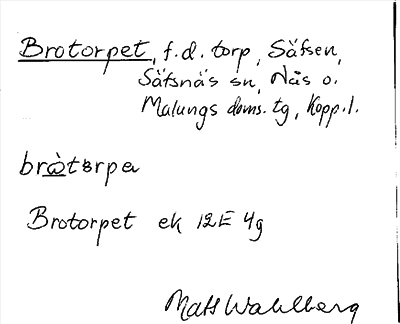 Brotorpet, f.d. torp, Säfsen,
Säfsnäs sn, Nås o.
Malungs doms. tg, Kopp. l.
bròtɜrpɐ
Brotorpet ek 12E 4g
Mats Wahlberg